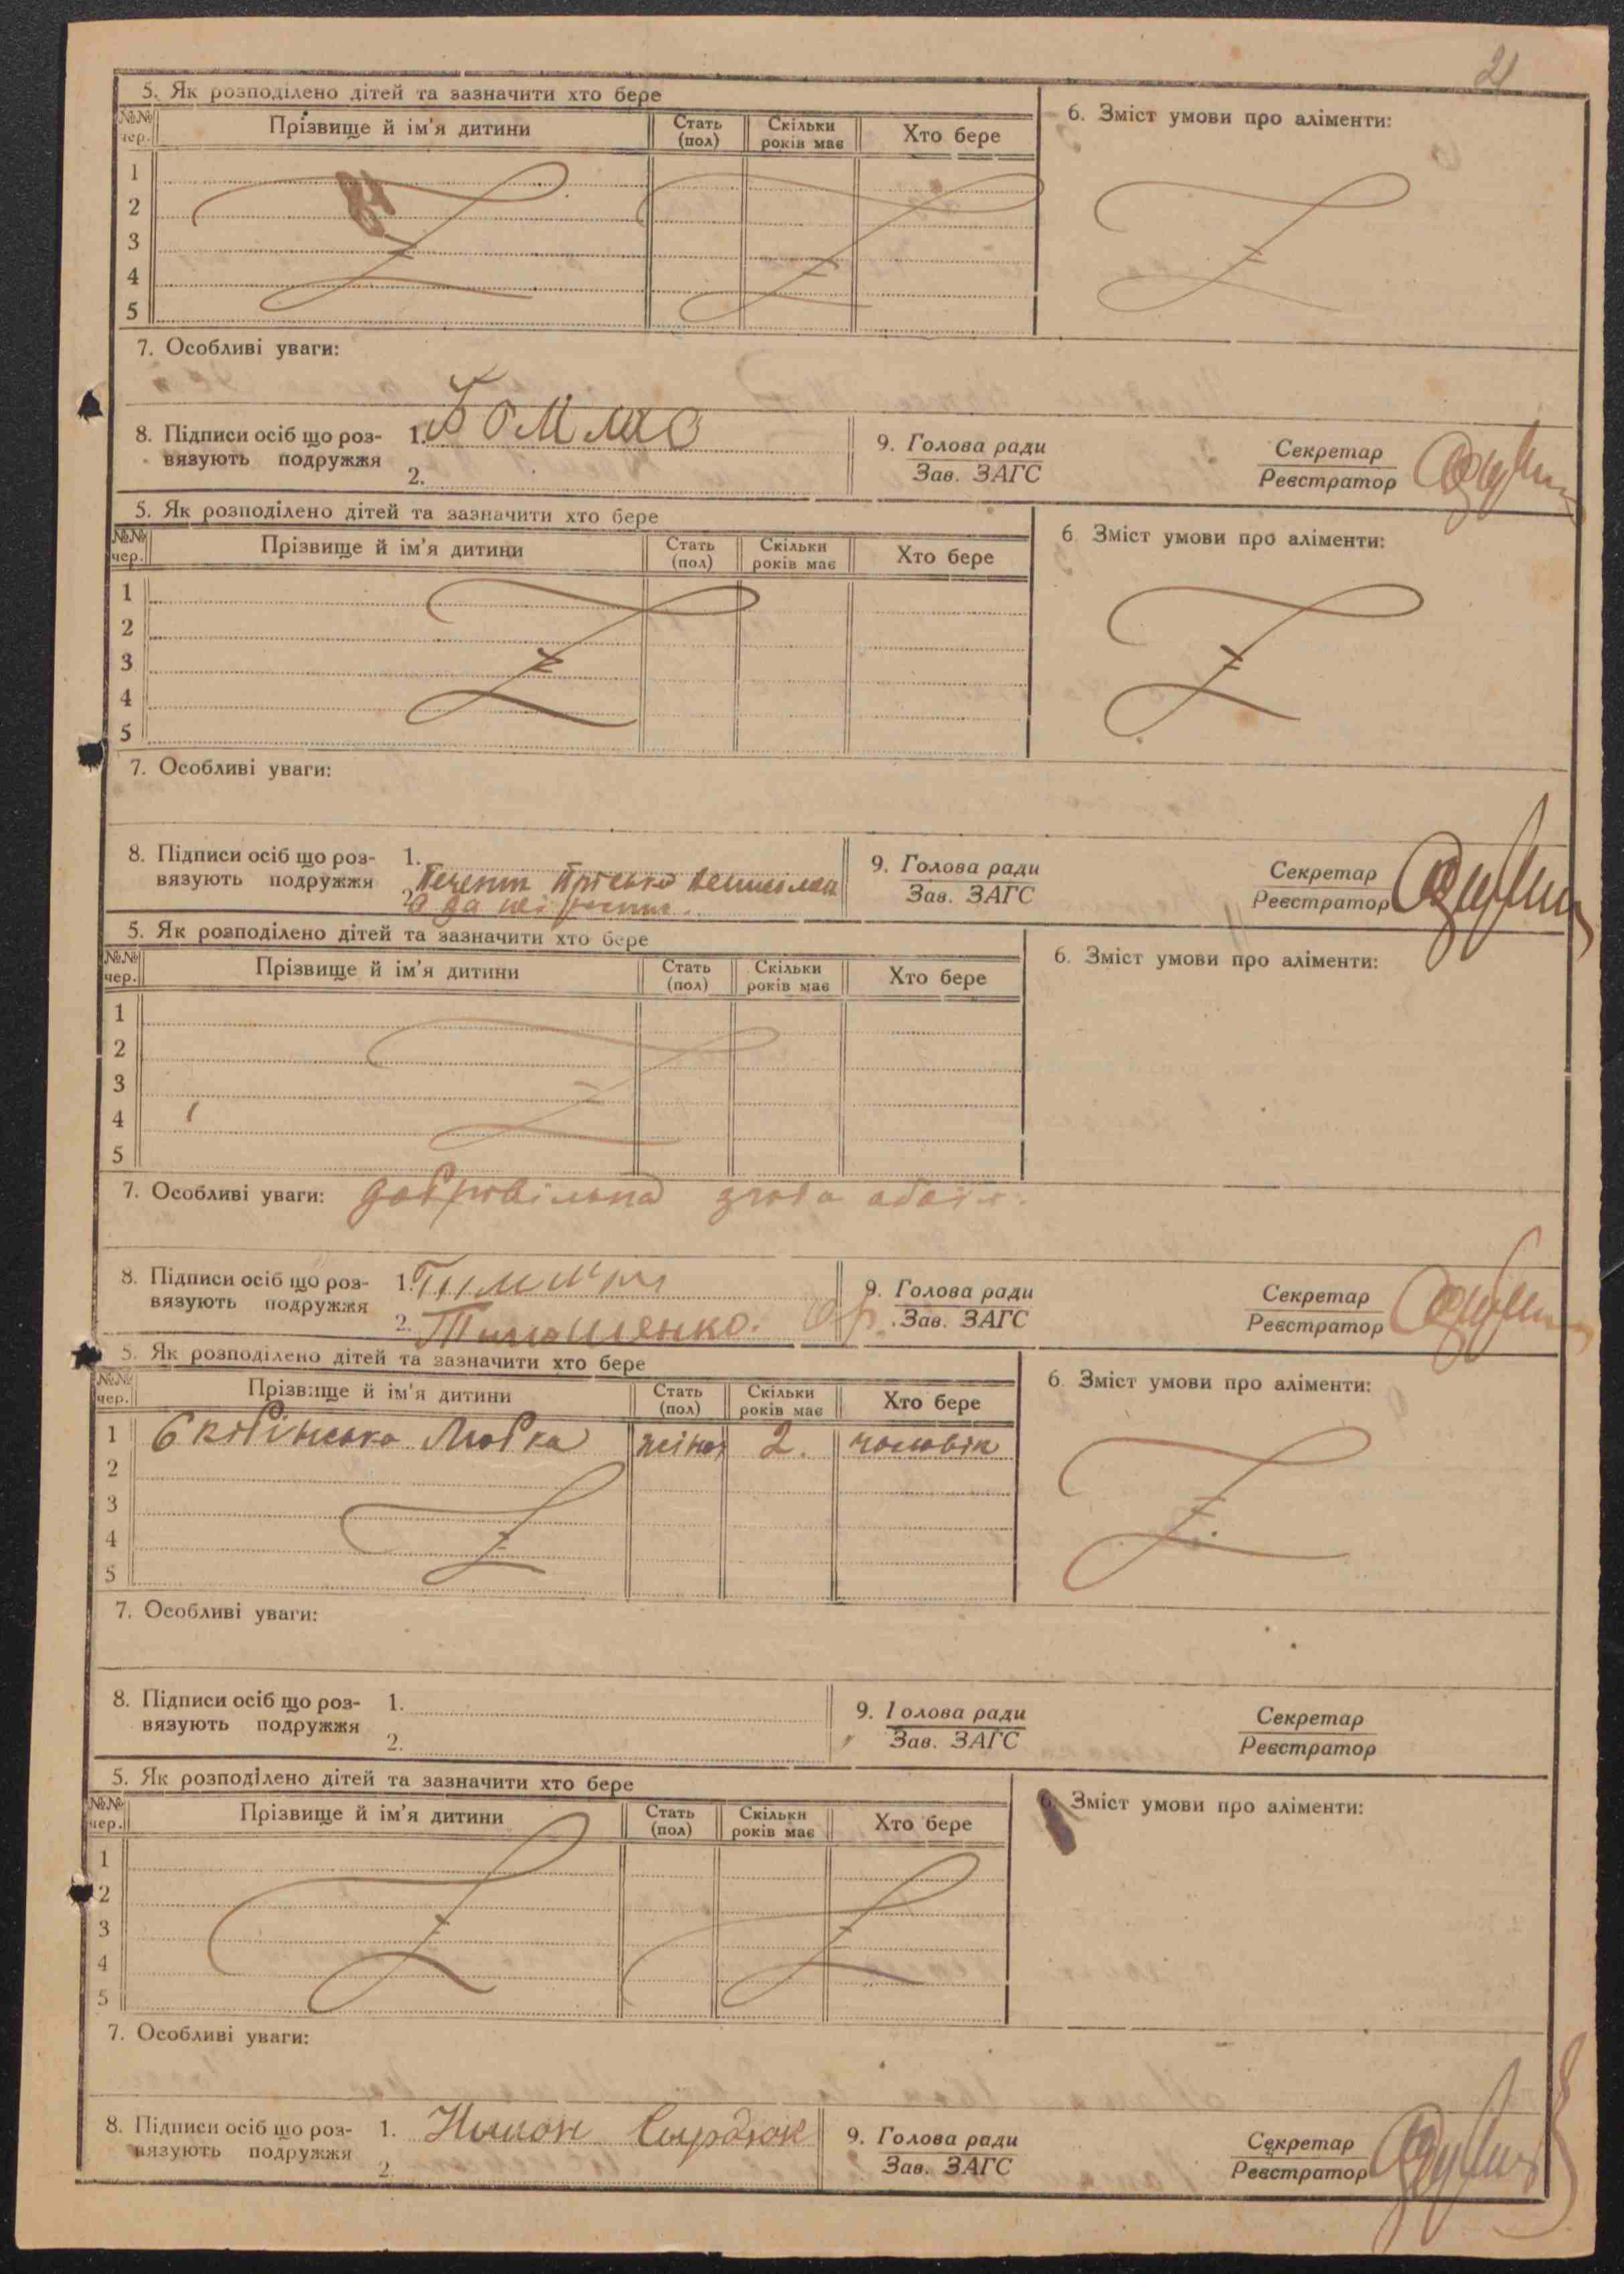 21
5. Як розподілено дітей та зазначити хто бере
№№ чер. Прізвище й ім'я дитини Стать (пол) Скільки років має Хто бере
6. Зміст умови про аліменти:
1
2
3
4
5
7. Особливі уваги:
8. Підписи осіб що роз-
вязують подружжя
1.
2.
9. Голова ради
Зав. ЗАГС
Секретар
Реєстратор
5. Як розподілено дітей та зазначити хто бере
№№ чер. Прізвище й ім'я дитини Стать (пол) Скільки років має Хто бере
6. Зміст умови про аліменти:
1
2
3
4
5
7. Особливі уваги:
8. Підписи осіб що роз-
вязують подружжя
1.
2.
9. Голова ради
Зав. ЗАГС
Секретар
Реєстратор
5. Як розподілено дітей та зазначити хто бере
№№ чер. Прізвище й ім'я дитини Стать (пол) Скільки років має Хто бере
6. Зміст умови про аліменти:
1
2
3
4
5
7. Особливі уваги: добровільна згода обоїх.
8. Підписи осіб що роз-
вязують подружжя
1.
2. Тимошенко.
9. Голова ради
Зав. ЗАГС
Секретар
Реєстратор
5. Як розподілено дітей та зазначити хто бере
№№ чер. Прізвище й ім'я дитини Стать (пол) Скільки років має Хто бере
6. Зміст умови про аліменти:
1 Любка 2. чоловік
2
3
4
5
7. Особливі уваги:
8. Підписи осіб що роз-
вязують подружжя
1.
2.
9. Голова ради
Зав. ЗАГС
Секретар
Реєстратор
5. Як розподілено дітей та зазначити хто бере
№№ чер. Прізвище й ім'я дитини Стать (пол) Скільки років має Хто бере
6. Зміст умови про аліменти:
1
2
3
4
5
7. Особливі уваги:
8. Підписи осіб що роз-
вязують подружжя
1. Сырдюк
2.
9. Голова ради
Зав. ЗАГС
Секретар
Реєстратор